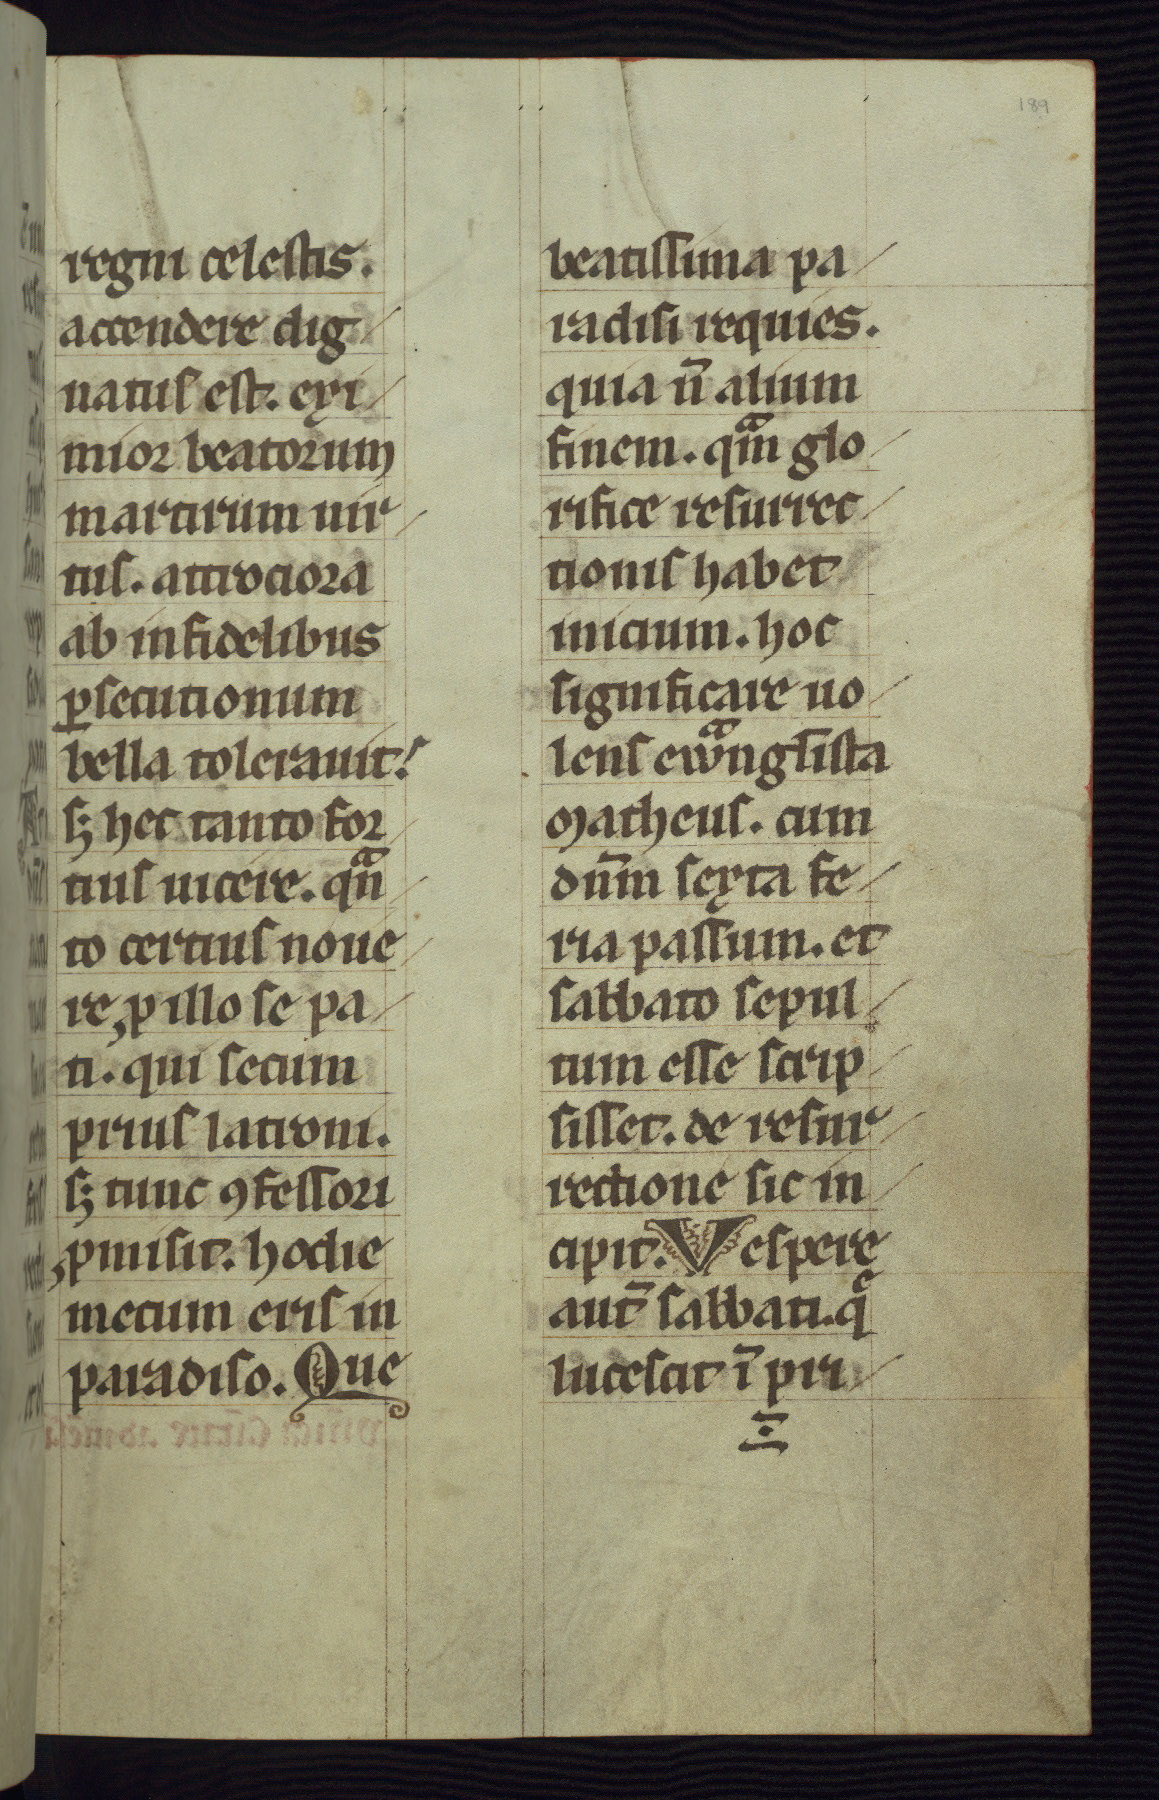 189
regni celestis.
accendere dig
natus est. exi
mior beatorum
martirum uir
tus. atrociora
ab infidelibus
ꝑsecutionum
bella tolerauit.
sꝫ hec tanto for
tius uicere. qͣn
to certius noue
re ꝓ illo se pa
ti. qui secum
prius latroni.
sꝫ tunc ꝯfessori
ꝓmisit. hodie
mecum eris in
paradiso. Que
beatissima pa
radisi requies.
quia n̄ alium
finem. qͣm glo
rifice resurrec
tionis habet
inicium. hoc
significare uo
lens ewͣngl̄ista
Matheus. cum
dn̄m sexta fe
ria passum. et
sabbato sepul
tum esse scrip
sisset. de resur
rectione sic in
cipit. Vespere
aut̄ sabbati. qͤ
lucescit ī pri